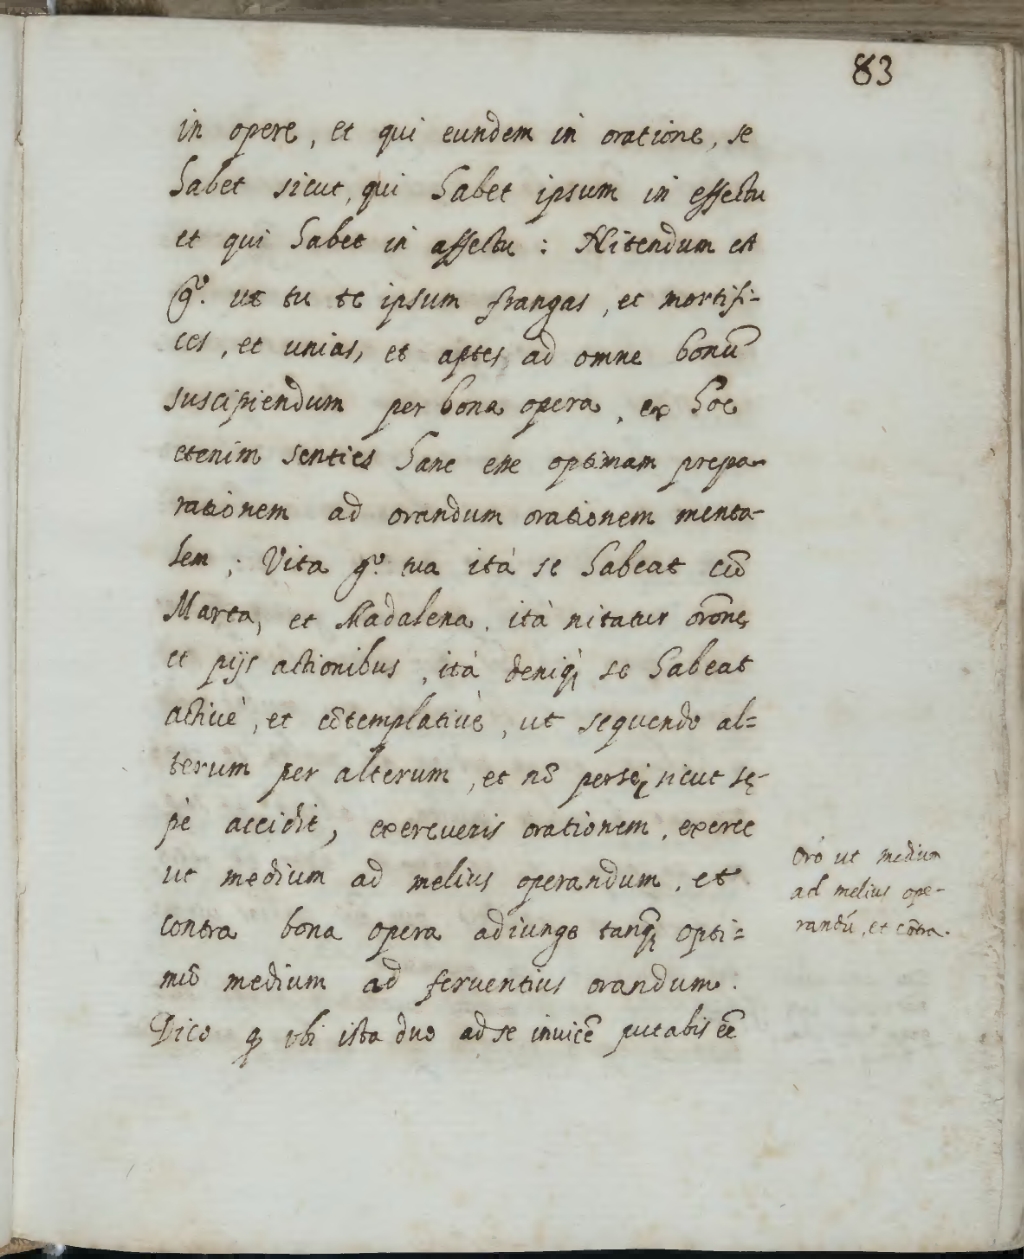 83
in opere, et qui eundem in oratione, se
habet sicut, qui habet ipsum in effectu
et qui habet in affectu: Nitendum est
g.º ut tu te ipsum frangas, et mortifi-
ces, et unias, et aptes ad omne bonū
suscipiendum per bona opera, ex hoc
etenim senties hanc esse optimam prepa-
rationem ad orandum orationem menta-
lem; Vita g.º tua ità se habeat cū
Marta, et Madalena, ità nitatur orōne,
et pijs actionibus, ità deniq; se habeat
activè, et cōtemplativè, ut sequendo al=
terum per alterum, et nō per se, sicut sę-
pè accidit, exercueris orationem, exerce
ut medium ad melius operandum, et
contra bona opera adiunge tanq; opti=
mū medium ad ferventius orandum.
Dico q ubi ista duo ad se invicē putabis eē
Orō ut medium
ad melius ope-
randū, et cōtra.